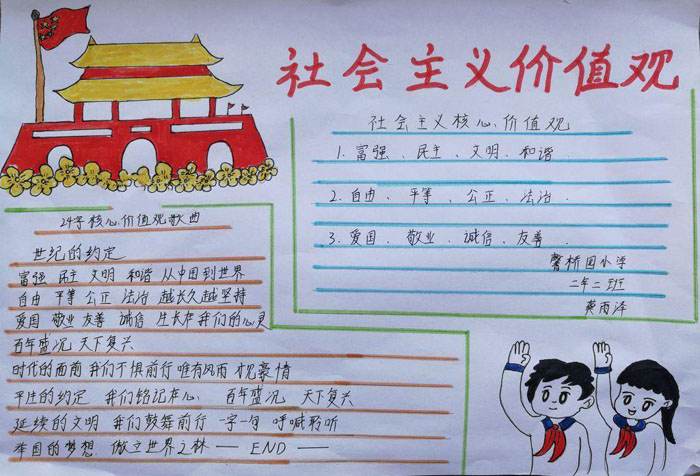 社会主义价值观
社会主义核心价值观
1. 富强、民主、文明、和谐.
2. 自由、平等、公正、法治.
3. 爱国、敬业、诚信、友善.
桥园小学
二年二班
24字核心价值观歌曲
世纪的约定
富强 民主 文明 和谐 从中国到世界
自由 平等 公正 法治 越长久越坚持
爱国 敬业 友善 诚信 生长在我们的心灵
百年盛况 天下复兴
时代的面前 我们不惧前行 唯有风雨 才见豪情
平生的约定 我们铭记在心 百年盛况 天下复兴
延续的文明 我们鼓舞前行 一字一句 呼喊聆听
举国的梦想 傲立世界之林 — END —